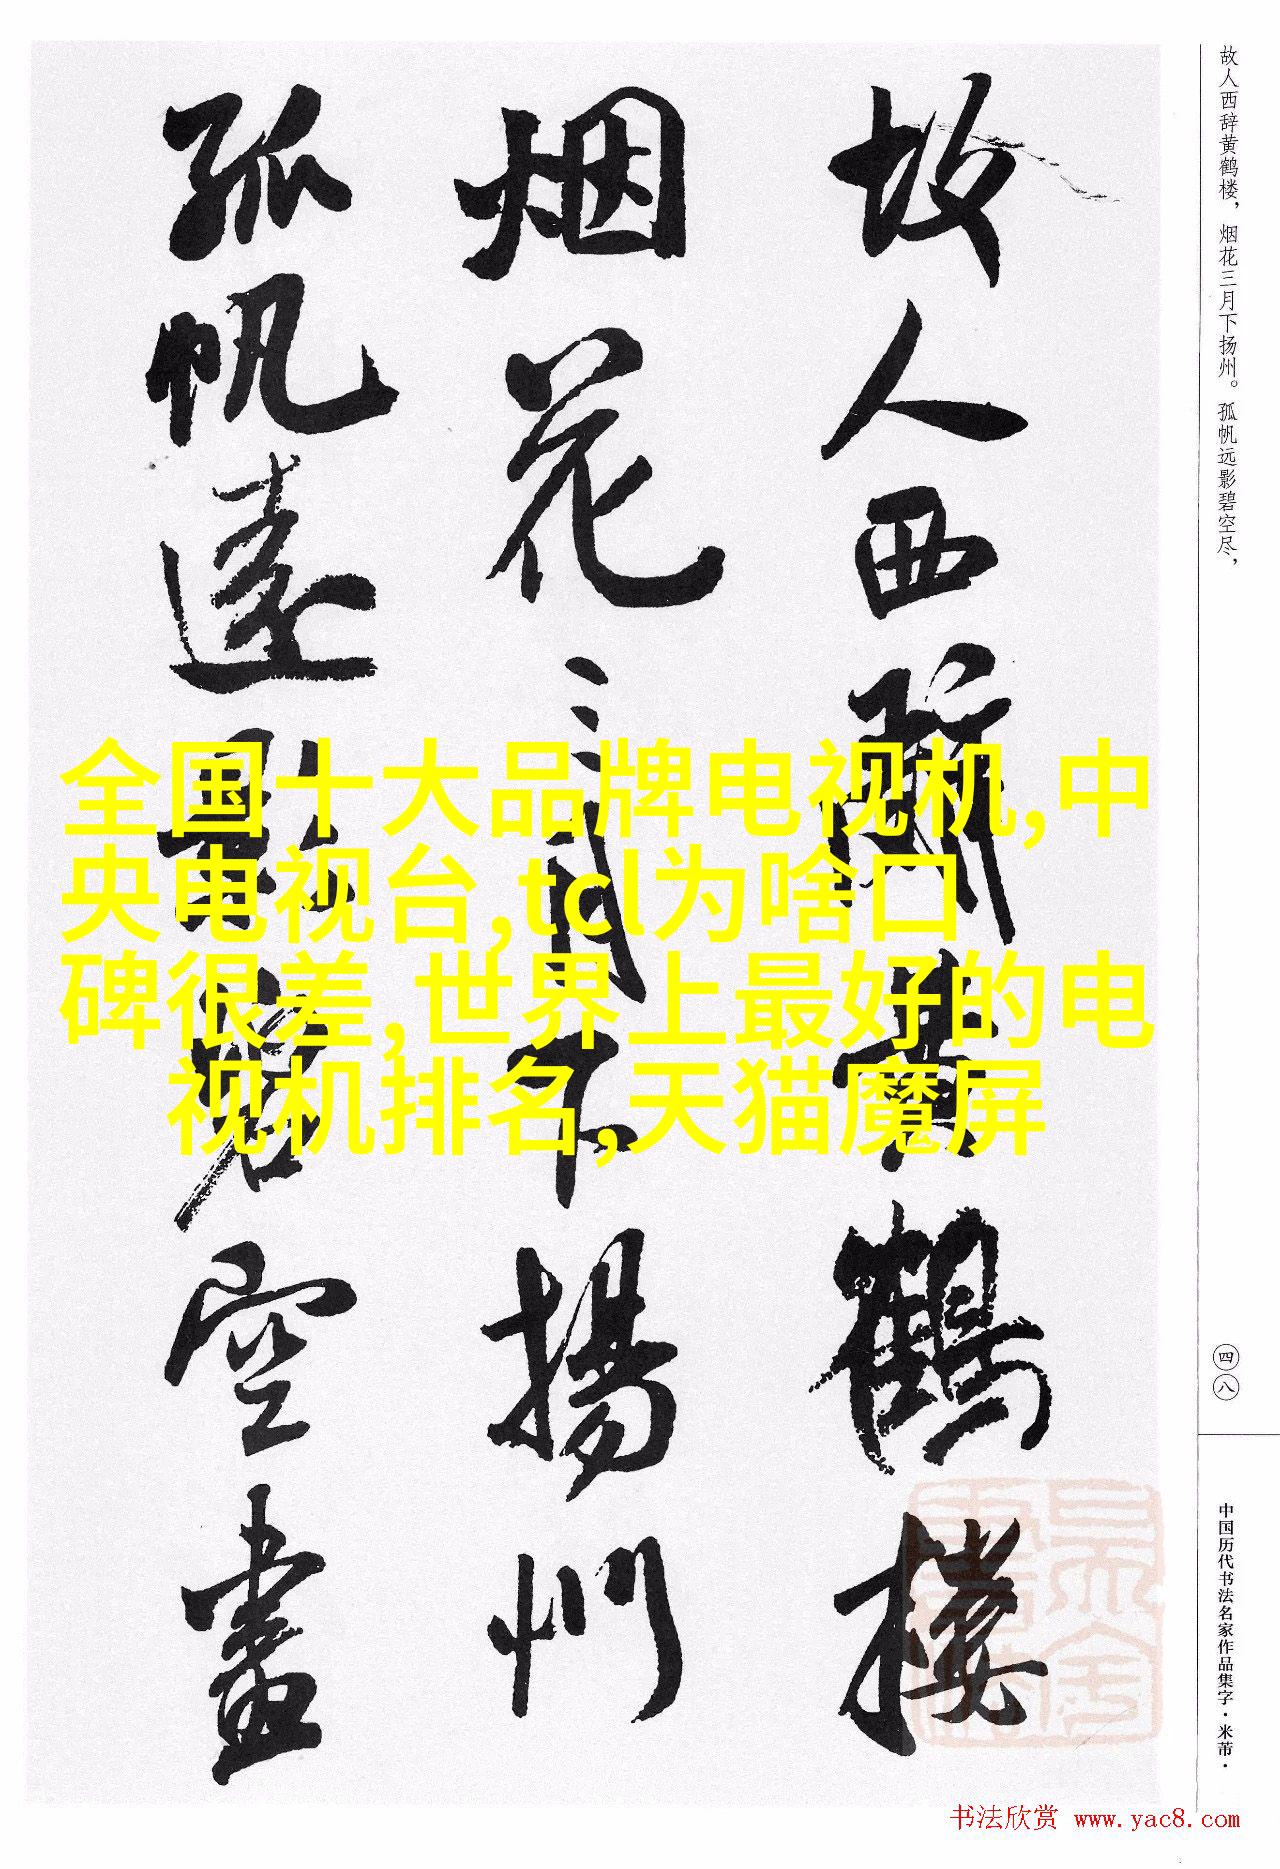 故人西辞黄鹤楼
烟花三月下扬州
孤帆远影碧空尽
故人西辞黄鹤楼，烟花三月下扬州。孤帆远影碧空尽，
全国十大品牌电视机,中
央电视台,tcl为啥口
碑很差,世界上最好的电
视机排名,天猫魔屏
四八
中国历代书法名家作品集字·米芾·
书法欣赏 www.yac8.com